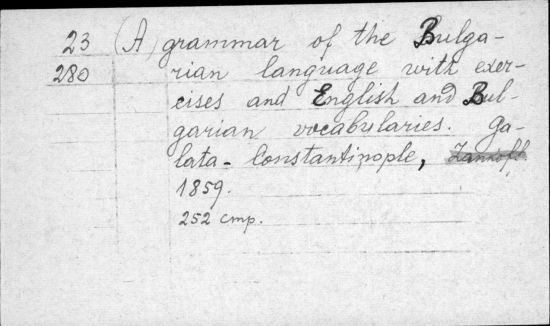 23 (A) grammar of the Bulga-
280 rian language with exer-
cises and English and Bul-
garian vocabularies. Ga-
lata - Constantinople,
1859.
252 стр.